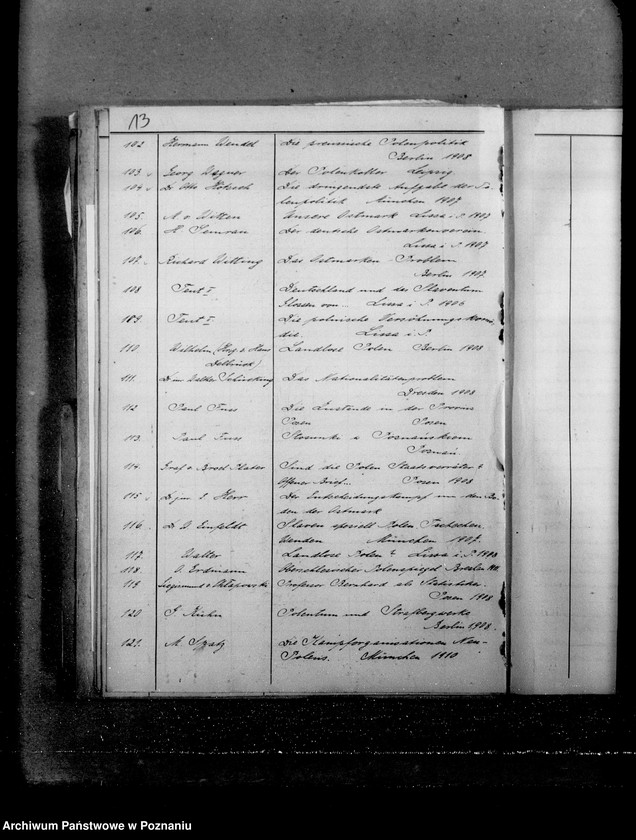 13
102 Hermann Wendel Die preussische Polenpolitik
Berlin 1908
103 Georg Wagner Der Polenkoller Leipzig
104 Dr Otto Hötzsch Die dringendste Aufgabe der Po-
lenpolitik München 1907
105. N v. Witten Unsere Ostmark Lissa i. P. 1907
106. H Semrau Der deutsche Ostmarkenverein
Lissa i P. 1907
107. Richard Witting Das Ostmarken-Problem
Berlin 1907.
108 Tent I Deutschland und das Slaventum
Glossen von Lissa i. P. 1906
109. Tent I Die polnische
die. Lissa i. P.
110 Wilhelm (Hrg. v. Hans Landlose Polen Berlin 1908
Delbrück)
111. Das Nationalitätenproblem
Dresden 1908
112 Paul Fuss Die Zustände in der Provinz
Posen Posen
113. Paul Fuss Stosunki w Poznańskiem
Poznań
114. Graf v. Broel Plater Sind die Polen Staatsverräter?
Offener Brief Posen 1908
115 Der Entscheidungskampf um den Bo-
den der Ostmark
116. Slaven speziell Polen, Tschechen
Wenden München 1907.
117. Walter Landlose Polen? Lissa i. P. 1908
118. O. Erdmann Oberschlesischer Polenspiegel Breslau
119 Professor Bernhard als Statistiker.
Posen 1908
120 F. Kuhn Polentum und
Berlin 1908.
121. M. Spatz Die Kampforganisationen Neu-
Polens. München 1910
Archiwum Państwowe w Poznaniu